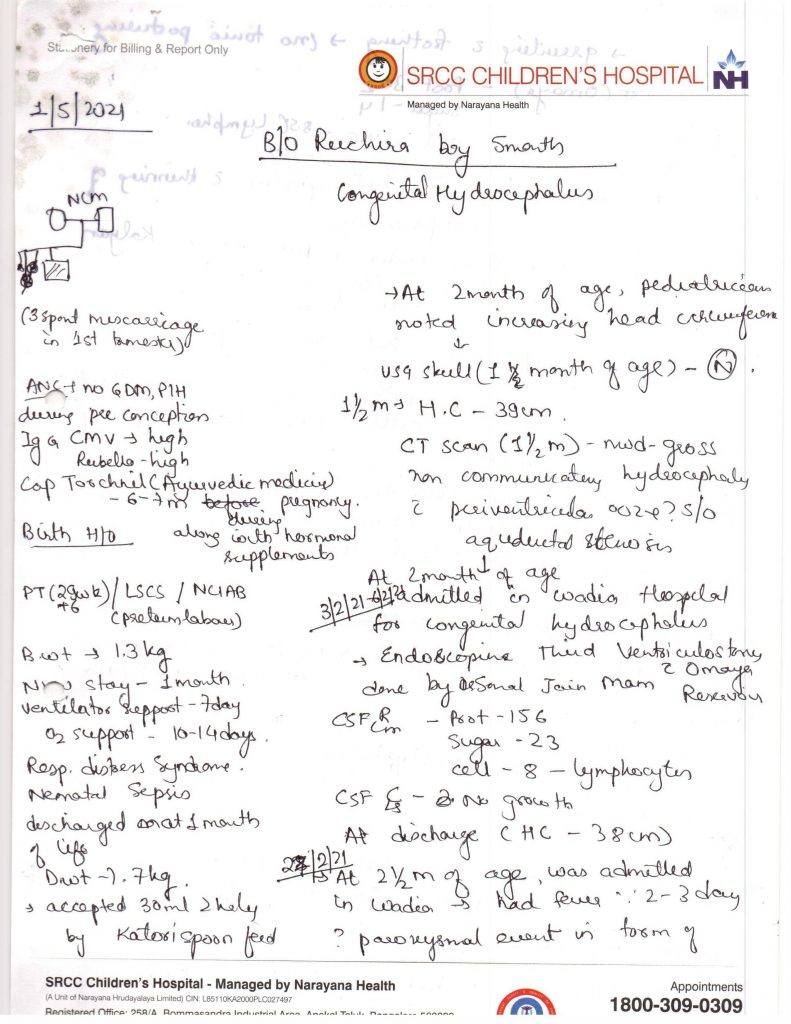 Stationery for Billing & Report Only
SRCC CHILDREN'S HOSPITAL
NH
Managed by Narayana Health
1/5/2021
B/O Ruchira boy 5month
Congenital Hydrocephalus
NCM
(3 spont miscarriage
in 1st trimester)
ANC → no GDM, PIH
during pre conception
Ig G CMV → high
Rubella - high
Cap Torchnil (Ayurvedic medicine)
- 6-7 m before during pregnancy.
along with hormonal
supplements
Birth H/O
PT (29wk+6) / LSCS / NCIAB
(preterm labour)
B wt → 1.3 kg
stay - 1 month
Ventilator support - 7day
O2 support - 10-14 days.
Resp. distress Syndrome.
Neonatal Sepsis
discharged at 1 month
of life
Dwt - 1.7 kg.
→ accepted 30ml 2hrly
by Katori spoon feed
→ At 2 month of age, pediatrician
noted increasing head circumference
↓
USG skull (1 ½ month of age) - N.
1½ m → H.C - 39cm.
CT scan (1½ m) - mod-gross
non communicating hydrocephaly
c̄ periventricular ooze ? s/o
aqueductal stenosis
↓
At 2 month of age
3/2/21 admitted in Wadia Hospital
for congenital hydrocephalus
→ Endoscopic Third Ventriculostomy
c̄ Omaya
done by Dr Sonal Jain Mam Reservoir
CSF R/m - Prot - 156
Sugar - 23
cell - 8 - lymphocytes
CSF C/s - No growth
At discharge (HC - 38cm)
/2/21
→ At 2½ m of age, was admitted
in Wadia → had fever ∵ 2-3 day
? paroxysmal event in form of
SRCC Children's Hospital - Managed by Narayana Health
(A Unit of Narayana Hrudayalaya Limited) CIN: L85110KA2000PLC027497
Registered Office: 258/A, Bommasandra Industrial Area, Anekal Taluk, Bangalore
Appointments
1800-309-0309